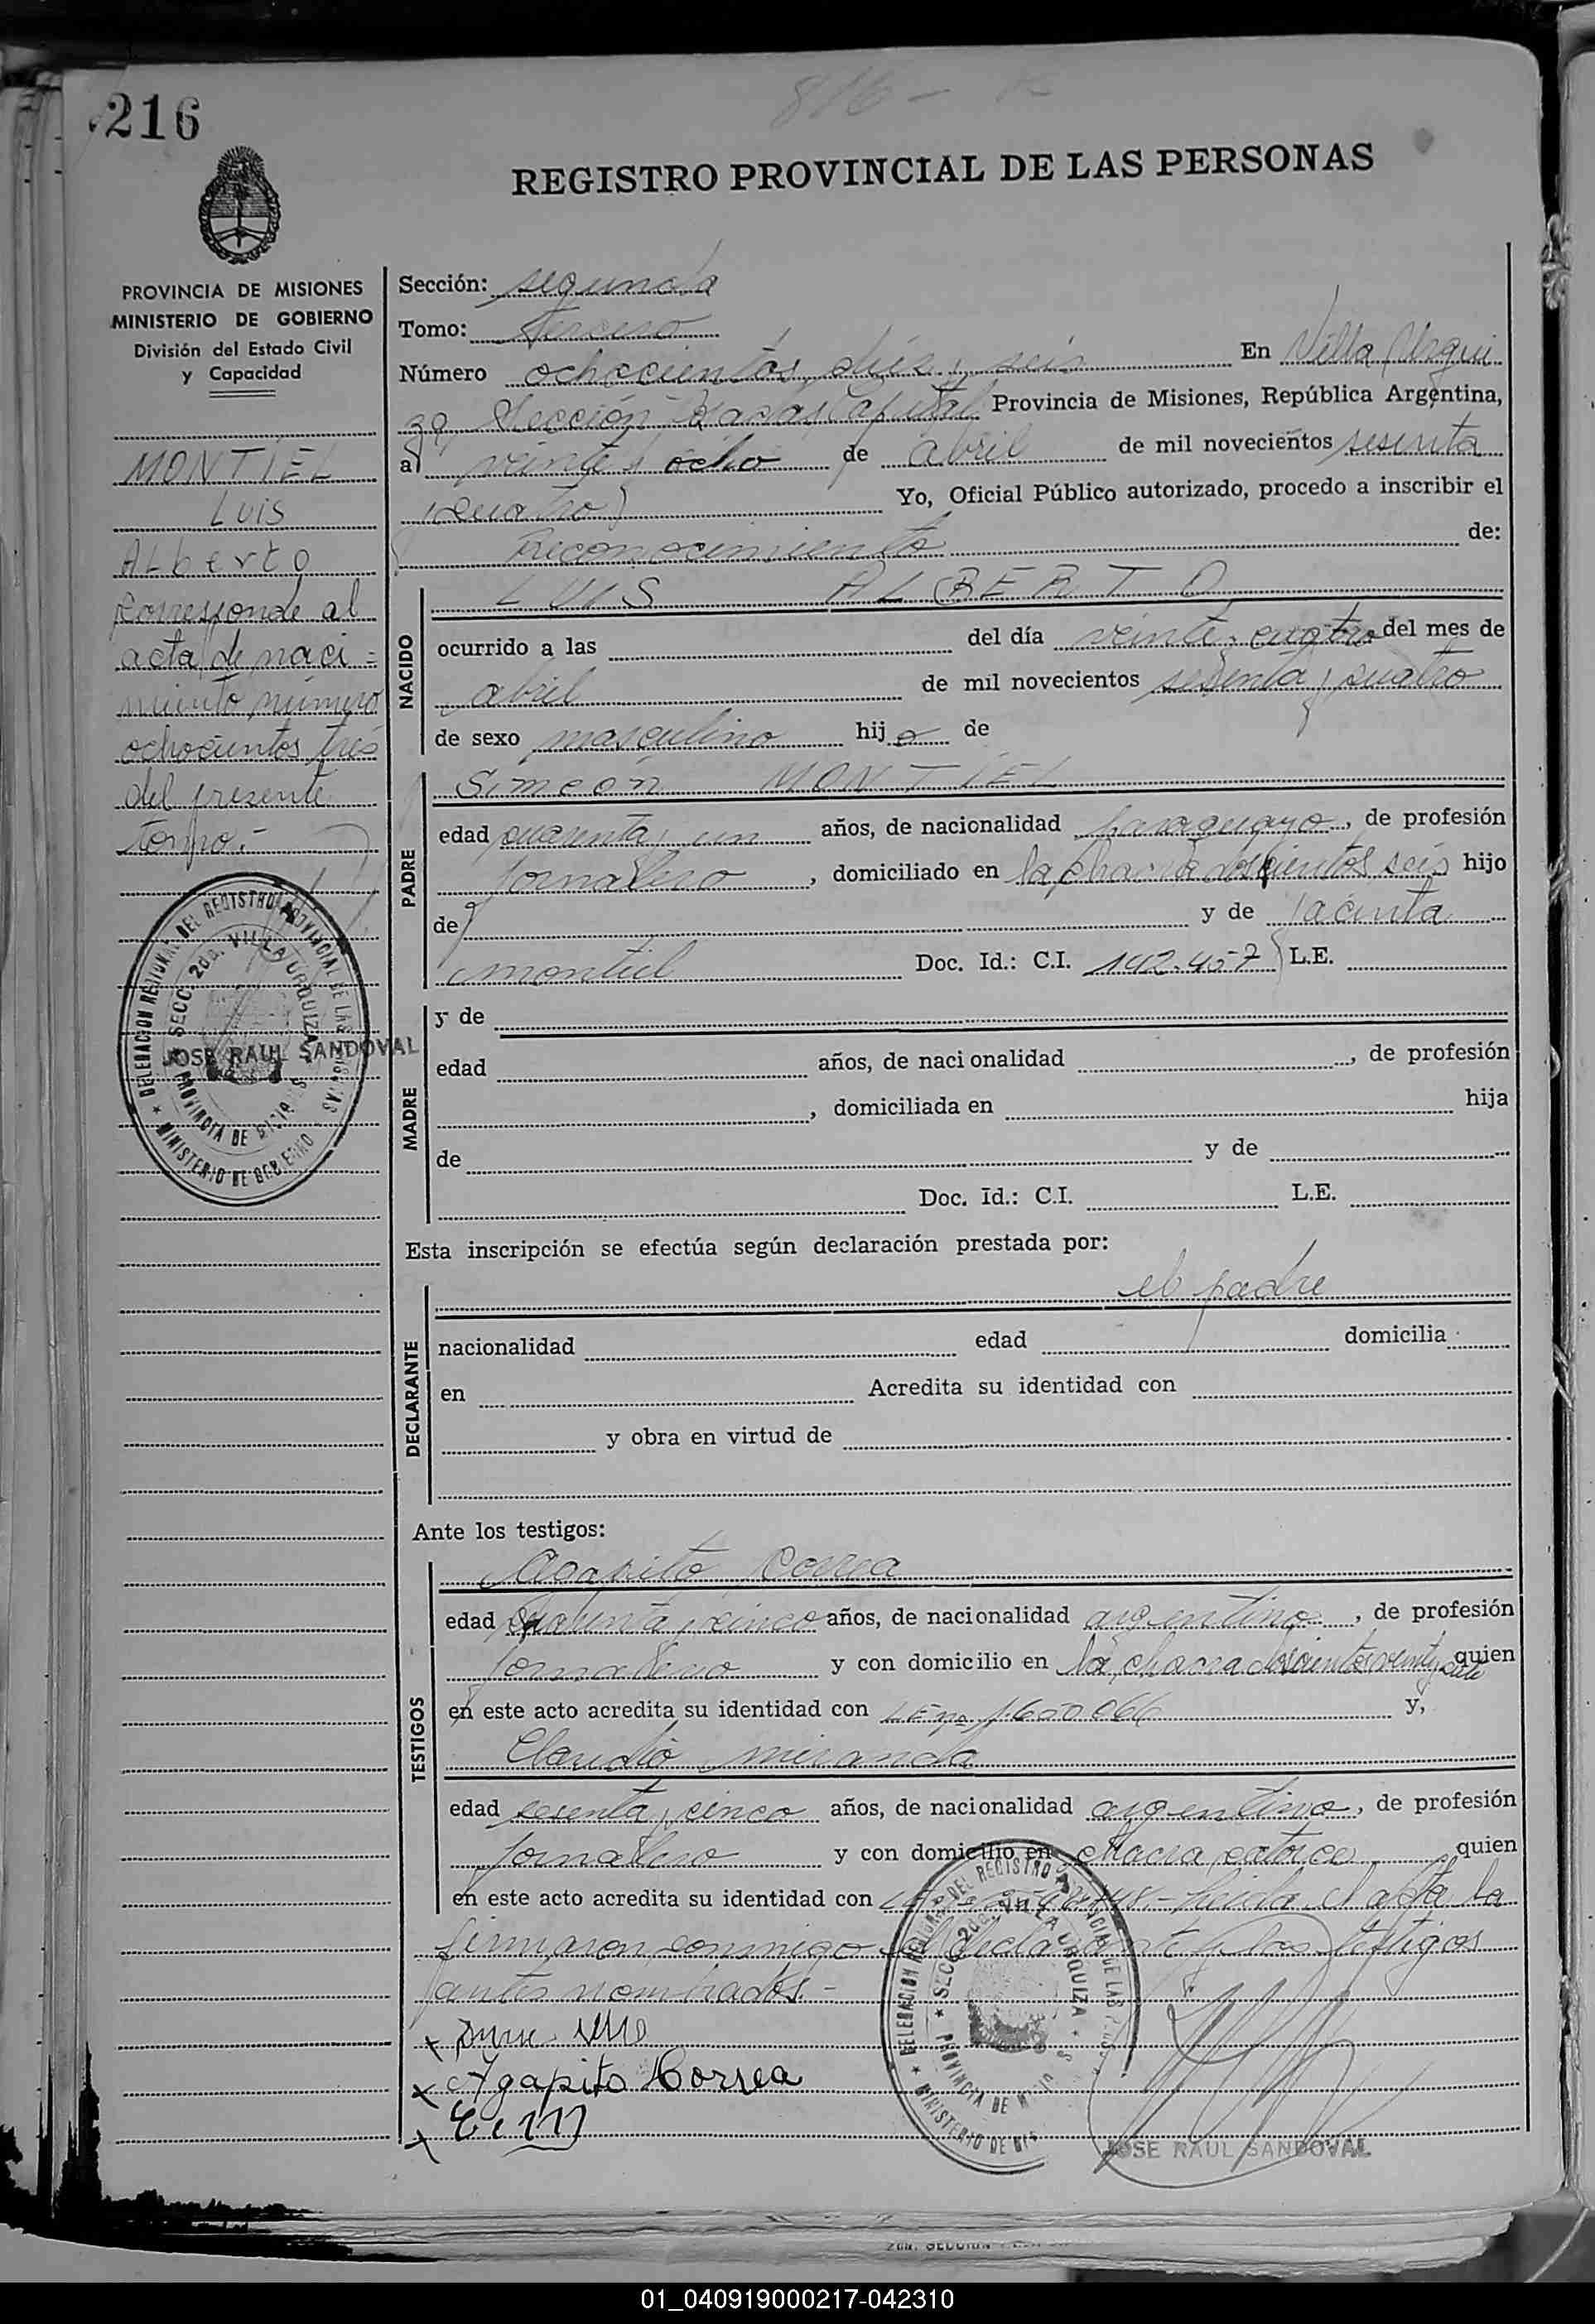 216
816 -
REGISTRO PROVINCIAL DE LAS PERSONAS
PROVINCIA DE MISIONES
MINISTERIO DE GOBIERNO
División del Estado Civil
y Capacidad
MONTIEL
Luis
ALberto
Corresponde al
acta de naci=
miento número
ochocientos tres
del presente
tomo.-
DELEGACION REGIONAL DEL REGISTRO PROVINCIAL DE LAS PERSONAS
SECC. 2da. VILLA URQUIZA
PROVINCIA DE MISIONES
MINISTERIO DE GOBIERNO
JOSE RAUL SANDOVAL
Sección: segunda
Tomo: tercero
Número ochocientos diez y seis En Villa Urqui
za Sección Capital Provincia de Misiones, República Argentina,
a veinte y ocho de abril de mil novecientos sesenta
y cuatro Yo, Oficial Público autorizado, procedo a inscribir el
Reconocimiento de:
NACIDO
LUIS ALBERTO
ocurrido a las del día veinte y cuatro del mes de
abril de mil novecientos sesenta y cuatro
de sexo masculino hijo de
PADRE
Simeon MONTIEL
edad cuarenta y un años, de nacionalidad paraguayo, de profesión
jornalero, domiciliado en la chacra doscientos seis hijo
de y de Jacinta
montiel Doc. Id.: C.I. 142.457 L.E.
MADRE
y de
edad años, de nacionalidad , de profesión
, domiciliada en hija
de y de
Doc. Id.: C.I. L.E.
Esta inscripción se efectúa según declaración prestada por:
DECLARANTE
el padre
nacionalidad edad domicilia
en Acredita su identidad con
y obra en virtud de
Ante los testigos:
TESTIGOS
Agapito Correa
edad cuarenta y cinco años, de nacionalidad argentino, de profesión
jornalero y con domicilio en la chacra doscientos veinte y siete quien
en este acto acredita su identidad con LE no 1600066 y,
Claudio miranda
edad sesenta y cinco años, de nacionalidad argentino, de profesión
jornalero y con domicilio en chacra catorce quien
en este acto acredita su identidad con leida el acta la
firmaron conmigo el declarante y los testigos
antes nombrados.-
x Agapito Correa
x C. M
DELEGACION REGIONAL DEL REGISTRO PROVINCIAL DE LAS PERSONAS
SECC. 2da. VILLA URQUIZA
PROVINCIA DE MISIONES
MINISTERIO DE
JOSE RAUL SANDOVAL
01_040919000217-042310